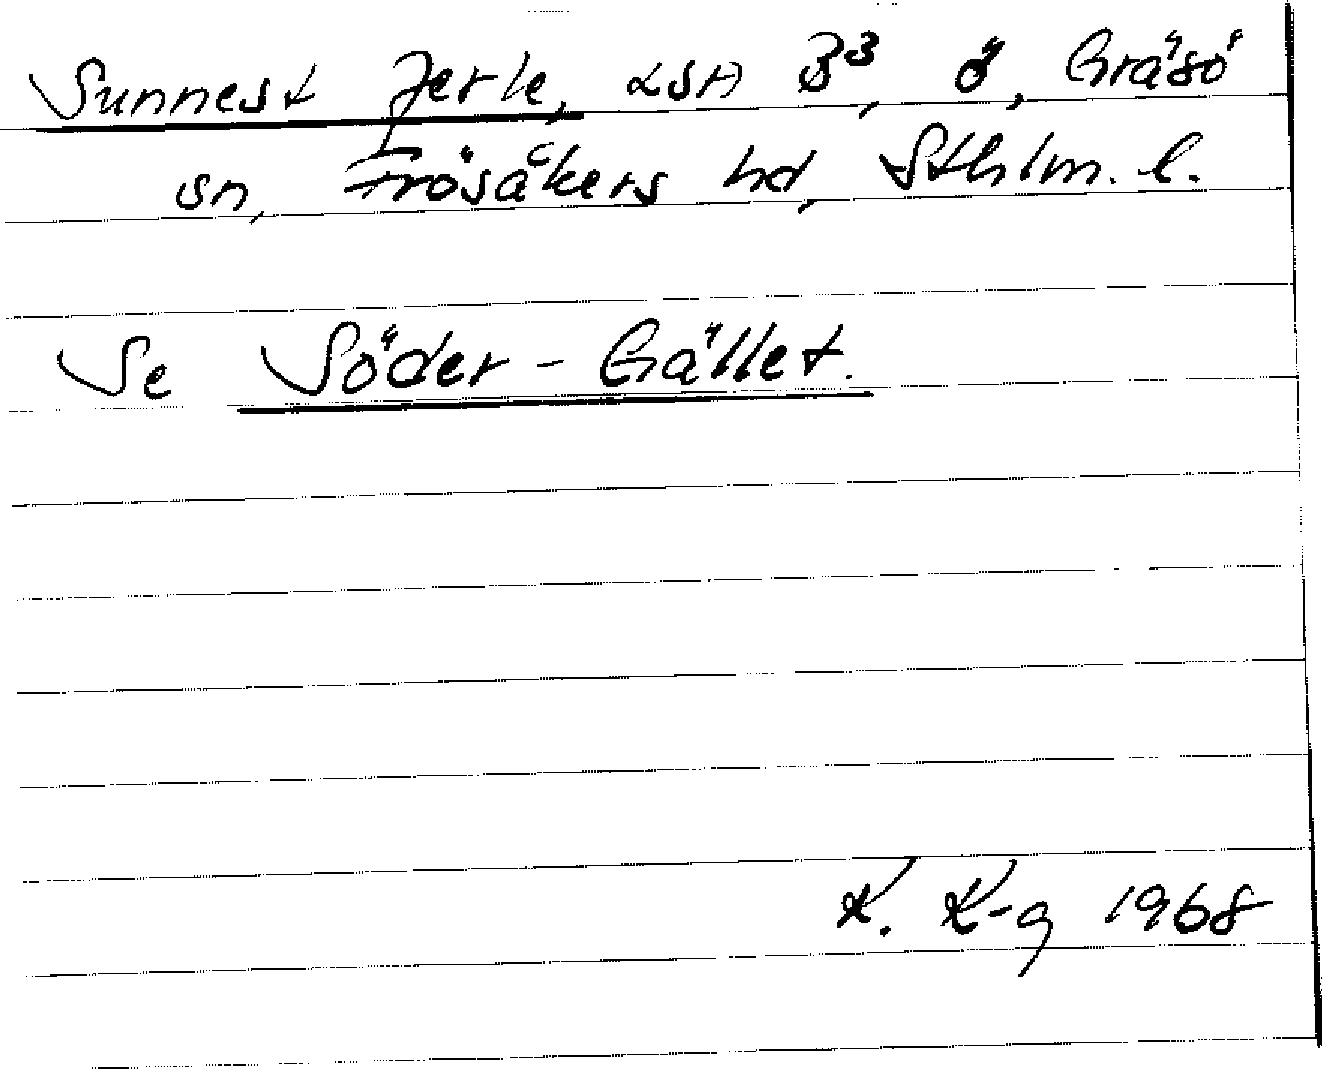 Sunnest Jerle, LSA B³, ö, Gräsö
sn, Frösåkers hd, Sthlm. l.
Se Söder-Gället.
K. K-g 1968